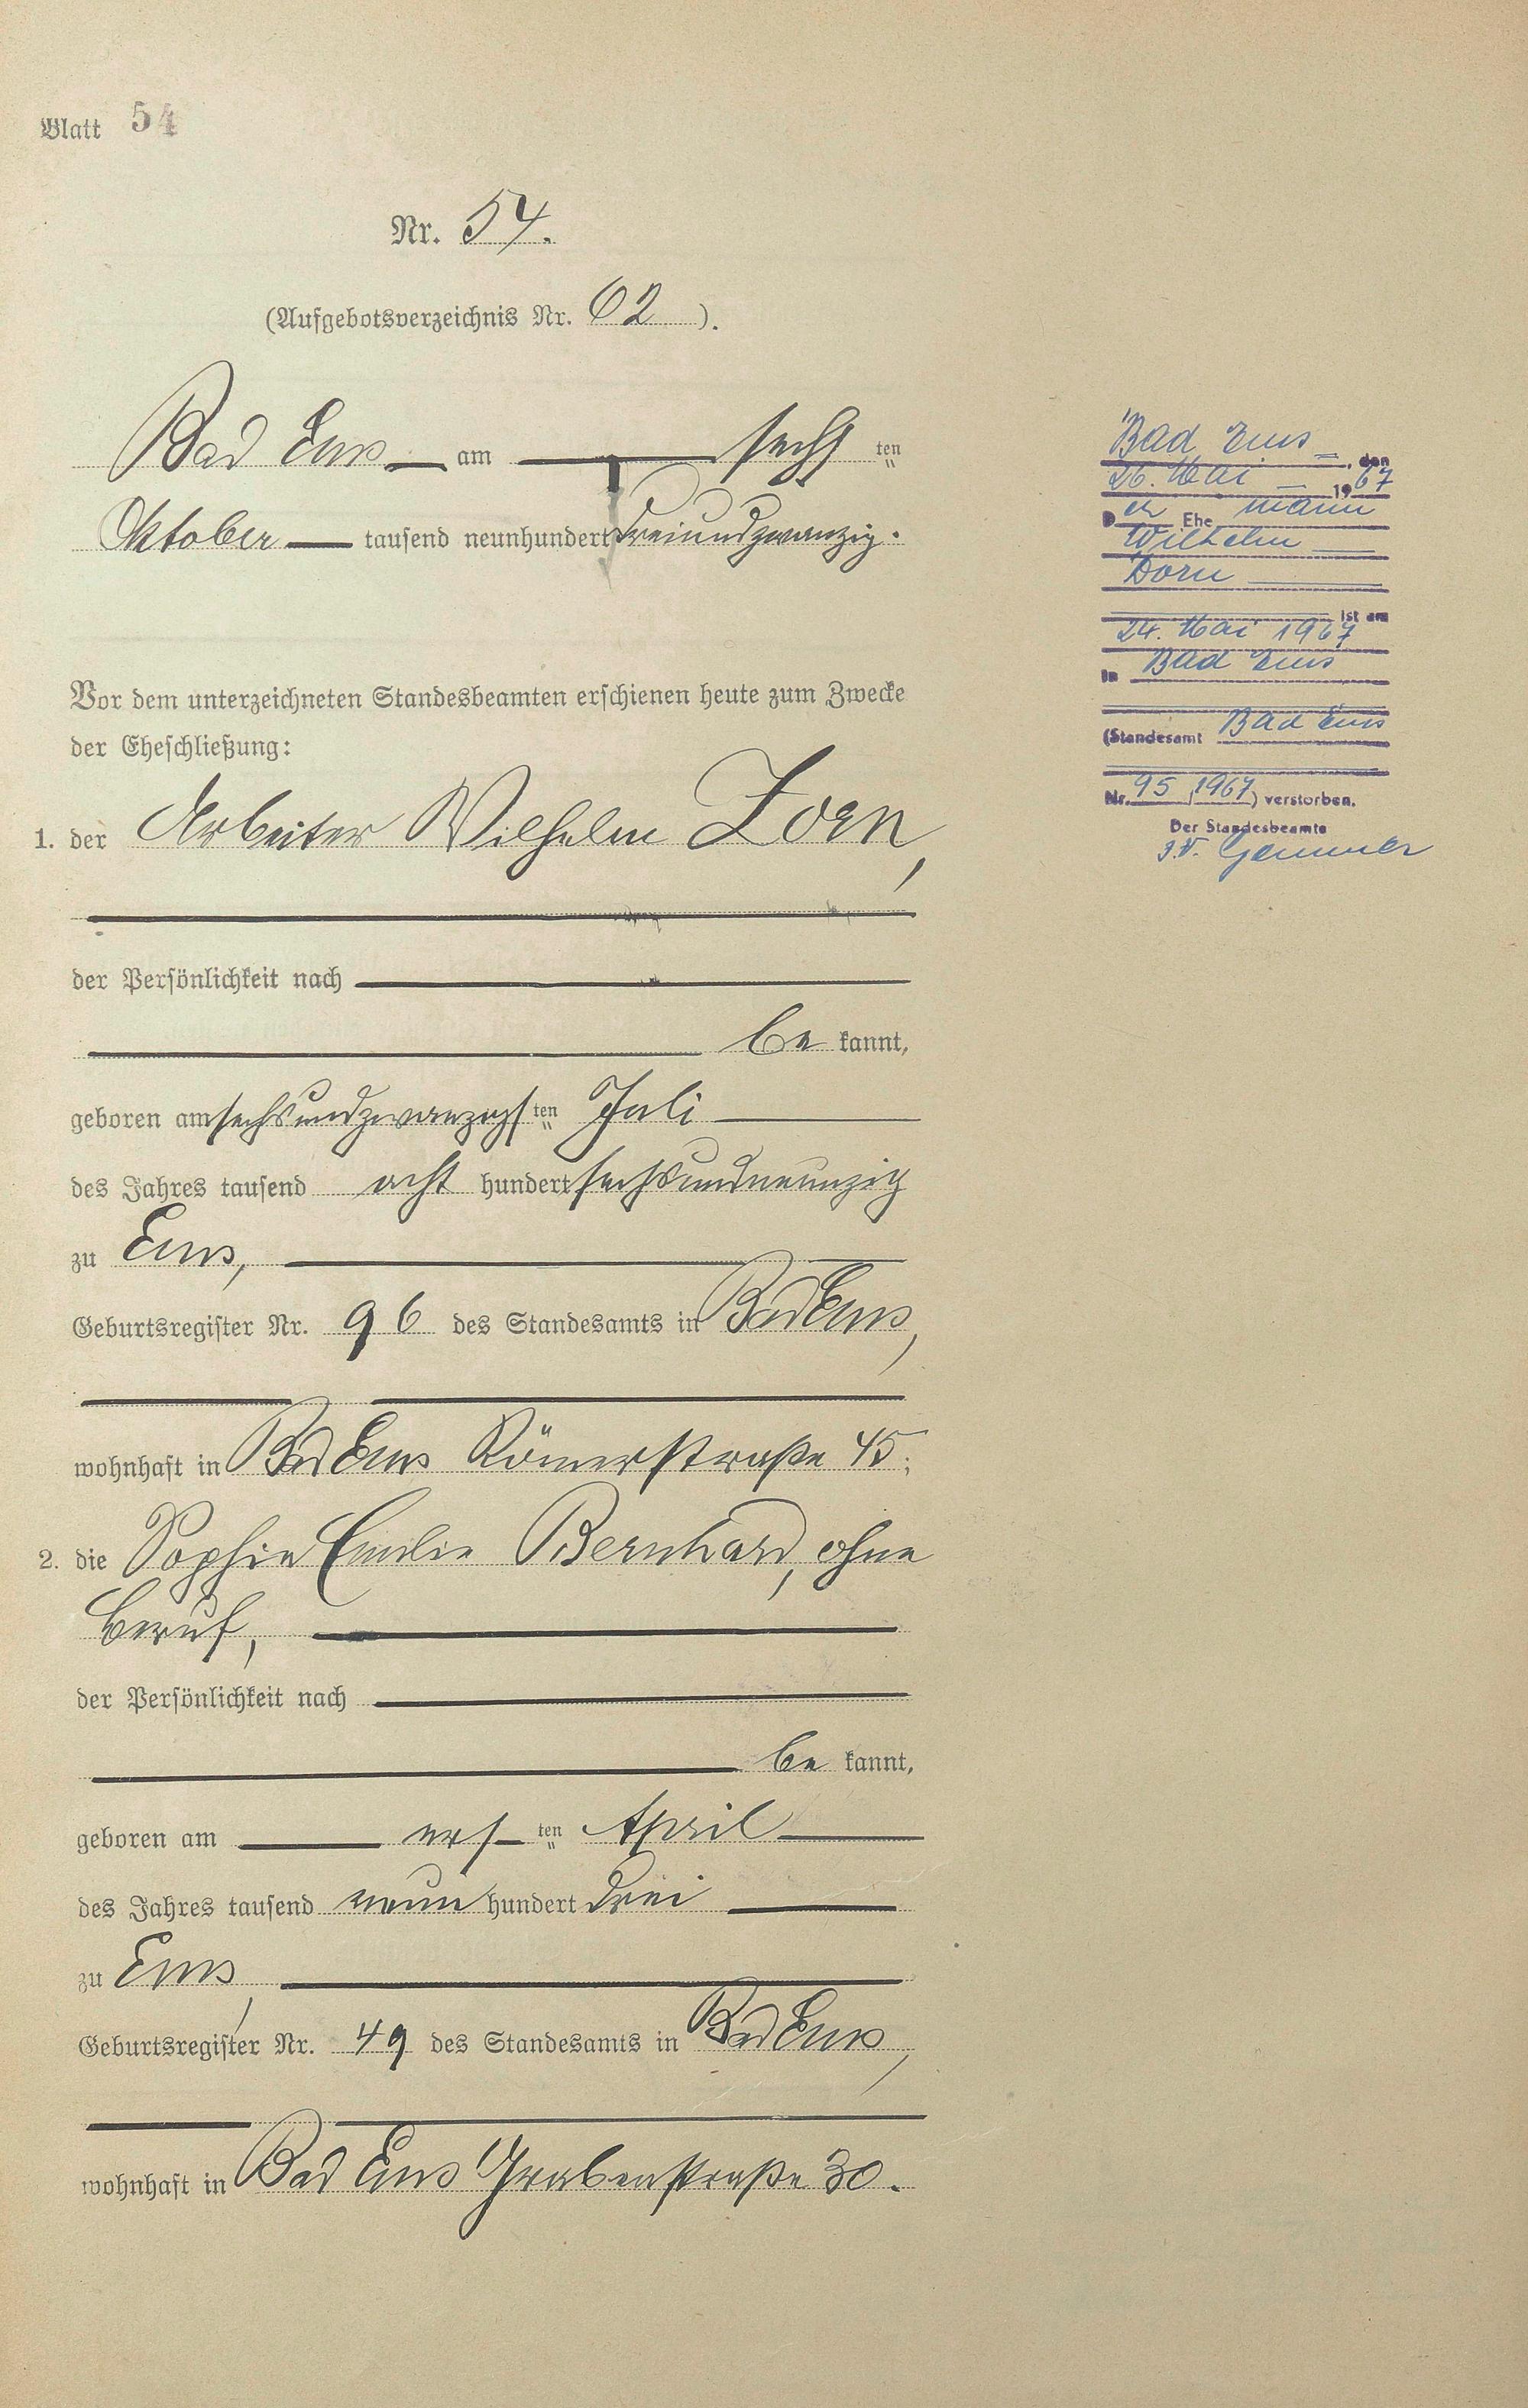 Blatt 54
Nr. 54.
(Aufgebotsverzeichnis Nr. 62 ).
Bad Ems am sechs ten
Oktober tausend neunhundert dreiundzwanzig.
Vor dem unterzeichneten Standesbeamten erschienen heute zum Zwecke
der Eheschließung:
1. der Arbeiter Wilhelm Dorn,
der Persönlichkeit nach
be kannt,
geboren am sechsundzwanzigs ten Juli
des Jahres tausend acht hundert sechsundneunzig
zu Ems,
Geburtsregister Nr. 96 des Standesamts in Bad Ems,
wohnhaft in Bad Ems Römerstraße 45;
2. die Sophie Emilie Bernhard, ohne
Beruf,
der Persönlichkeit nach
be kannt,
geboren am ers ten April
des Jahres tausend neun hundert drei
zu Ems,
Geburtsregister Nr. 49 des Standesamts in Bad Ems,
wohnhaft in Bad Ems Grabenstraße 30.
Bad Ems, den
26. Mai 1967
Der Ehemann
Wilhelm
Dorn
ist am
24. Mai 1967
in Bad Ems
(Standesamt Bad Ems
Nr. 95/1967) verstorben.
Der Standesbeamte
I.V. Gemmer